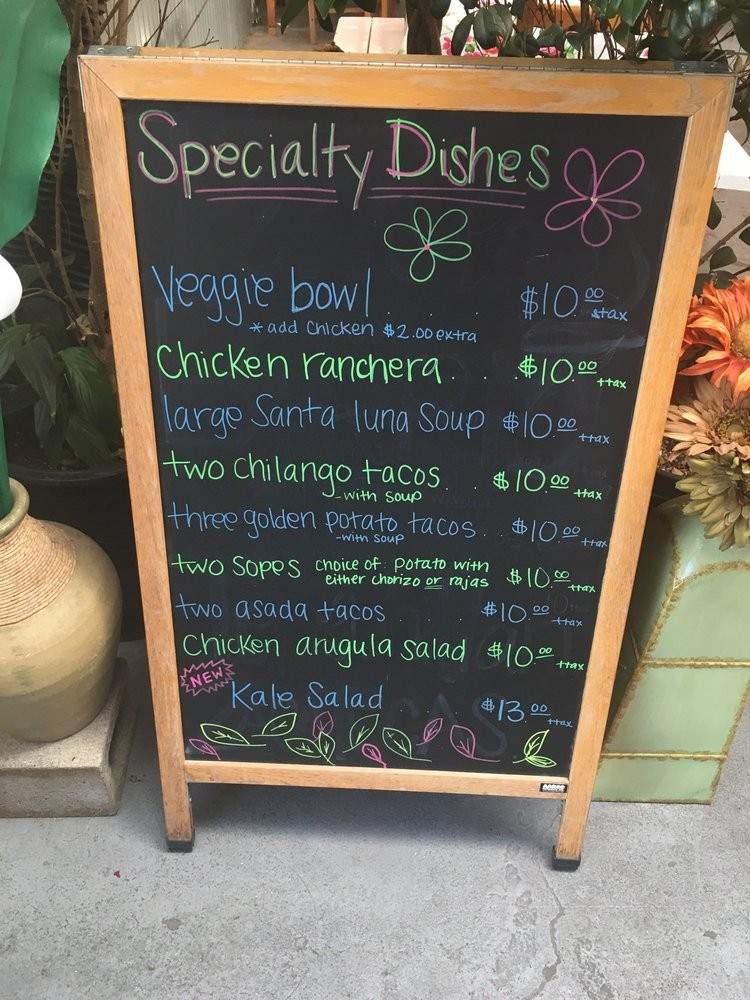 Specialty Dishes
Veggie bowl . . . $10.00 +tax
* add chicken $2.00 extra
Chicken ranchera . . . $10.00 +tax
large Santa luna Soup $10.00 +tax
two chilango tacos . $10.00 +tax
-with soup
three golden potato tacos . . $10.00 +tax
-with soup
two Sopes choice of: potato with $10.00 +tax
either chorizo or rajas
two asada tacos . . $10.00 +tax
Chicken arugula salad $10.00 +tax
NEW
Kale Salad $13.00 +tax